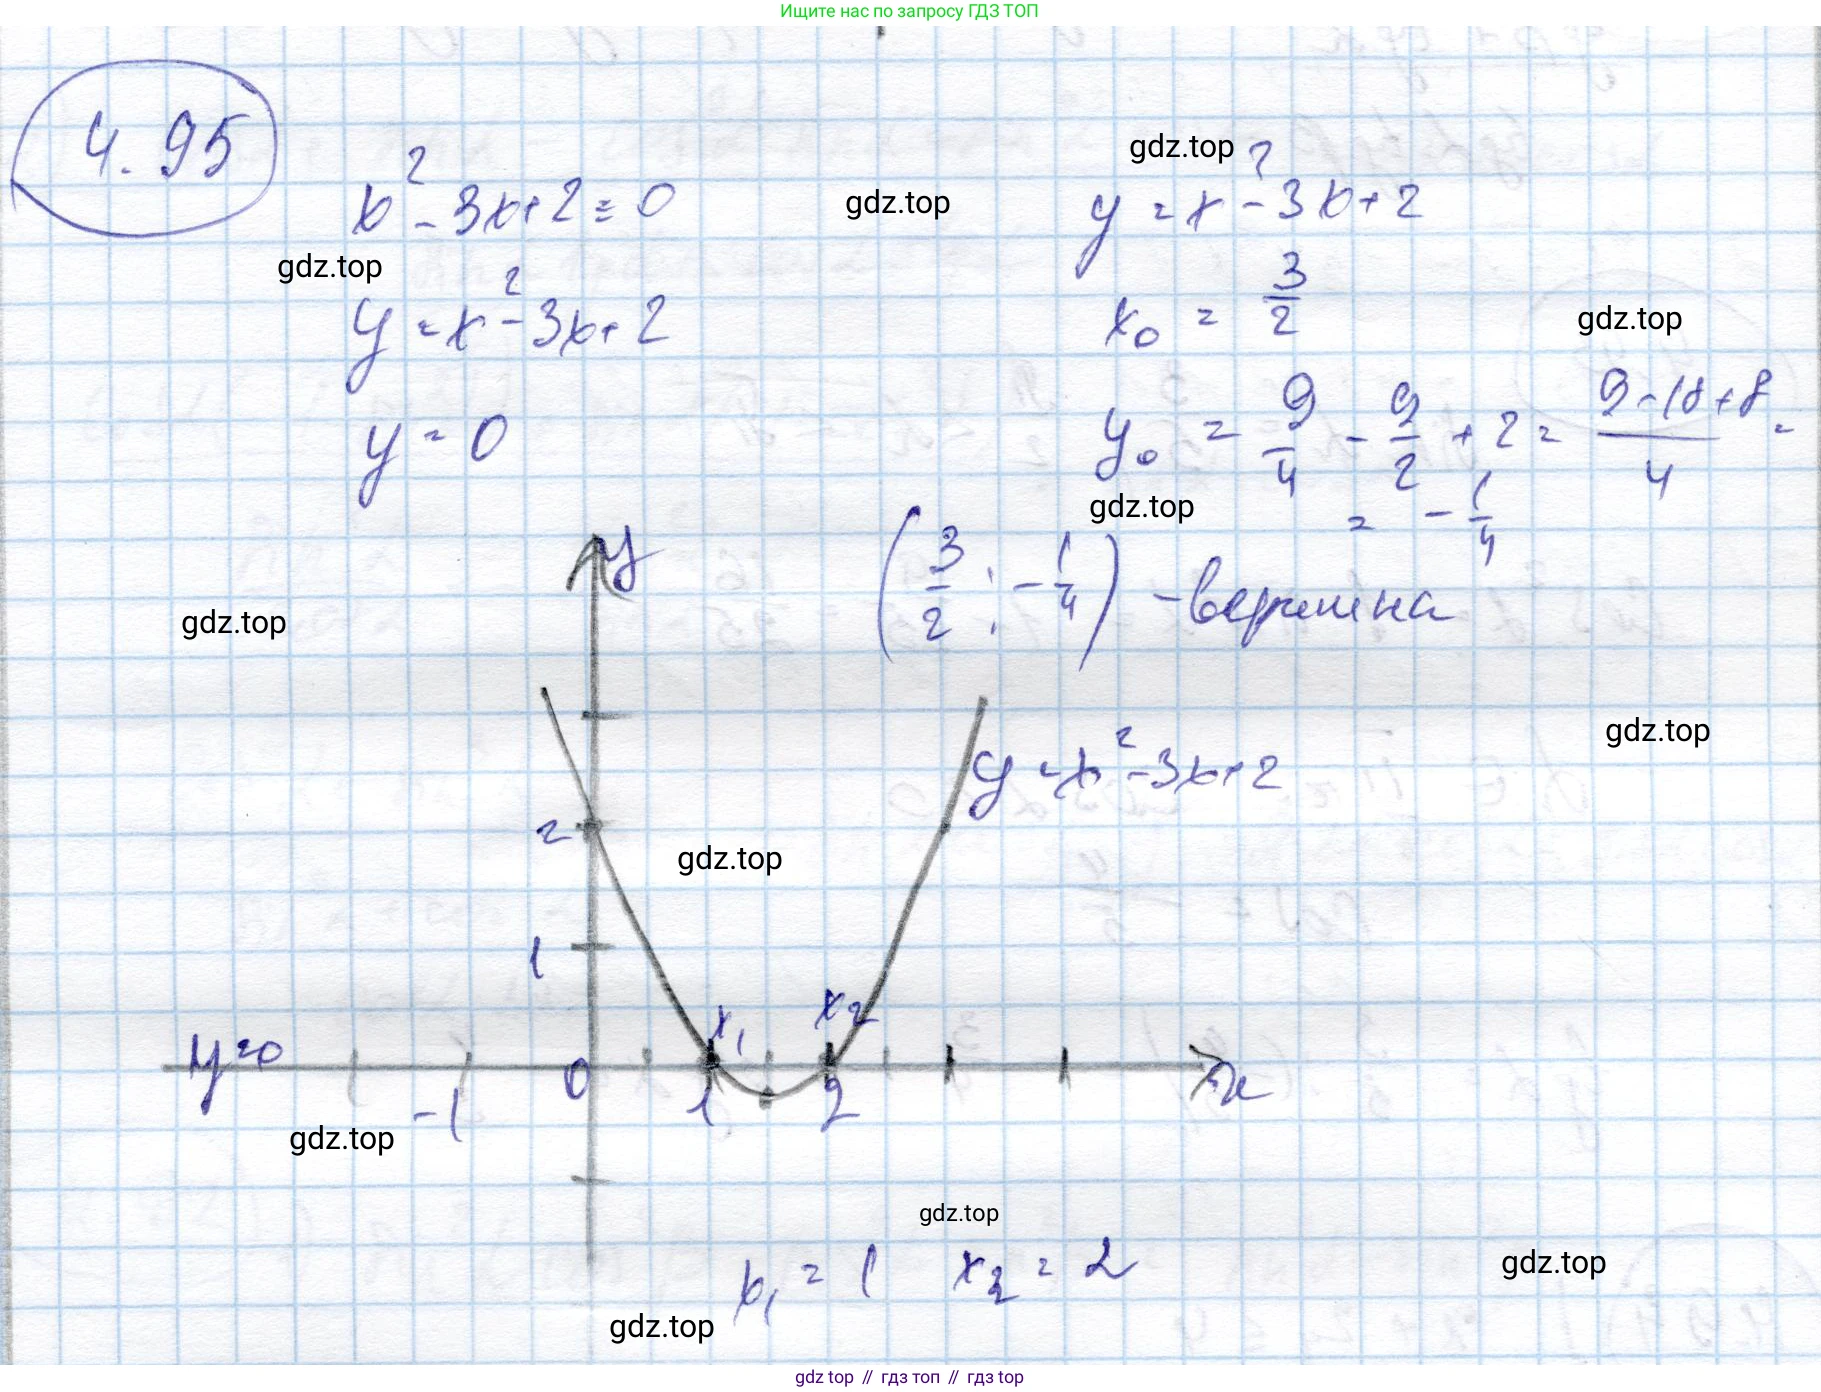 Ищите нас по запросу ГДЗ ТОП
4.95
x² - 3x + 2 = 0
y = x² - 3x + 2
y = 0
gdz.top
y = x² - 3x + 2
x₀ = 3/2
y₀ = 9/4 - 9/2 + 2 = (9 - 18 + 8)/4 =
= - 1/4
(3/2 ; - 1/4) - вершина
gdz.top
gdz.top
gdz.top
gdz.top
gdz.top
y
y = x² - 3x + 2
gdz.top
2
gdz.top
1
x₁
x₂
y = 0
-1
0
1
2
x
gdz.top
gdz.top
x₁ = 1 x₂ = 2
gdz.top
gdz.top
gdz top // гдз топ // гдз top